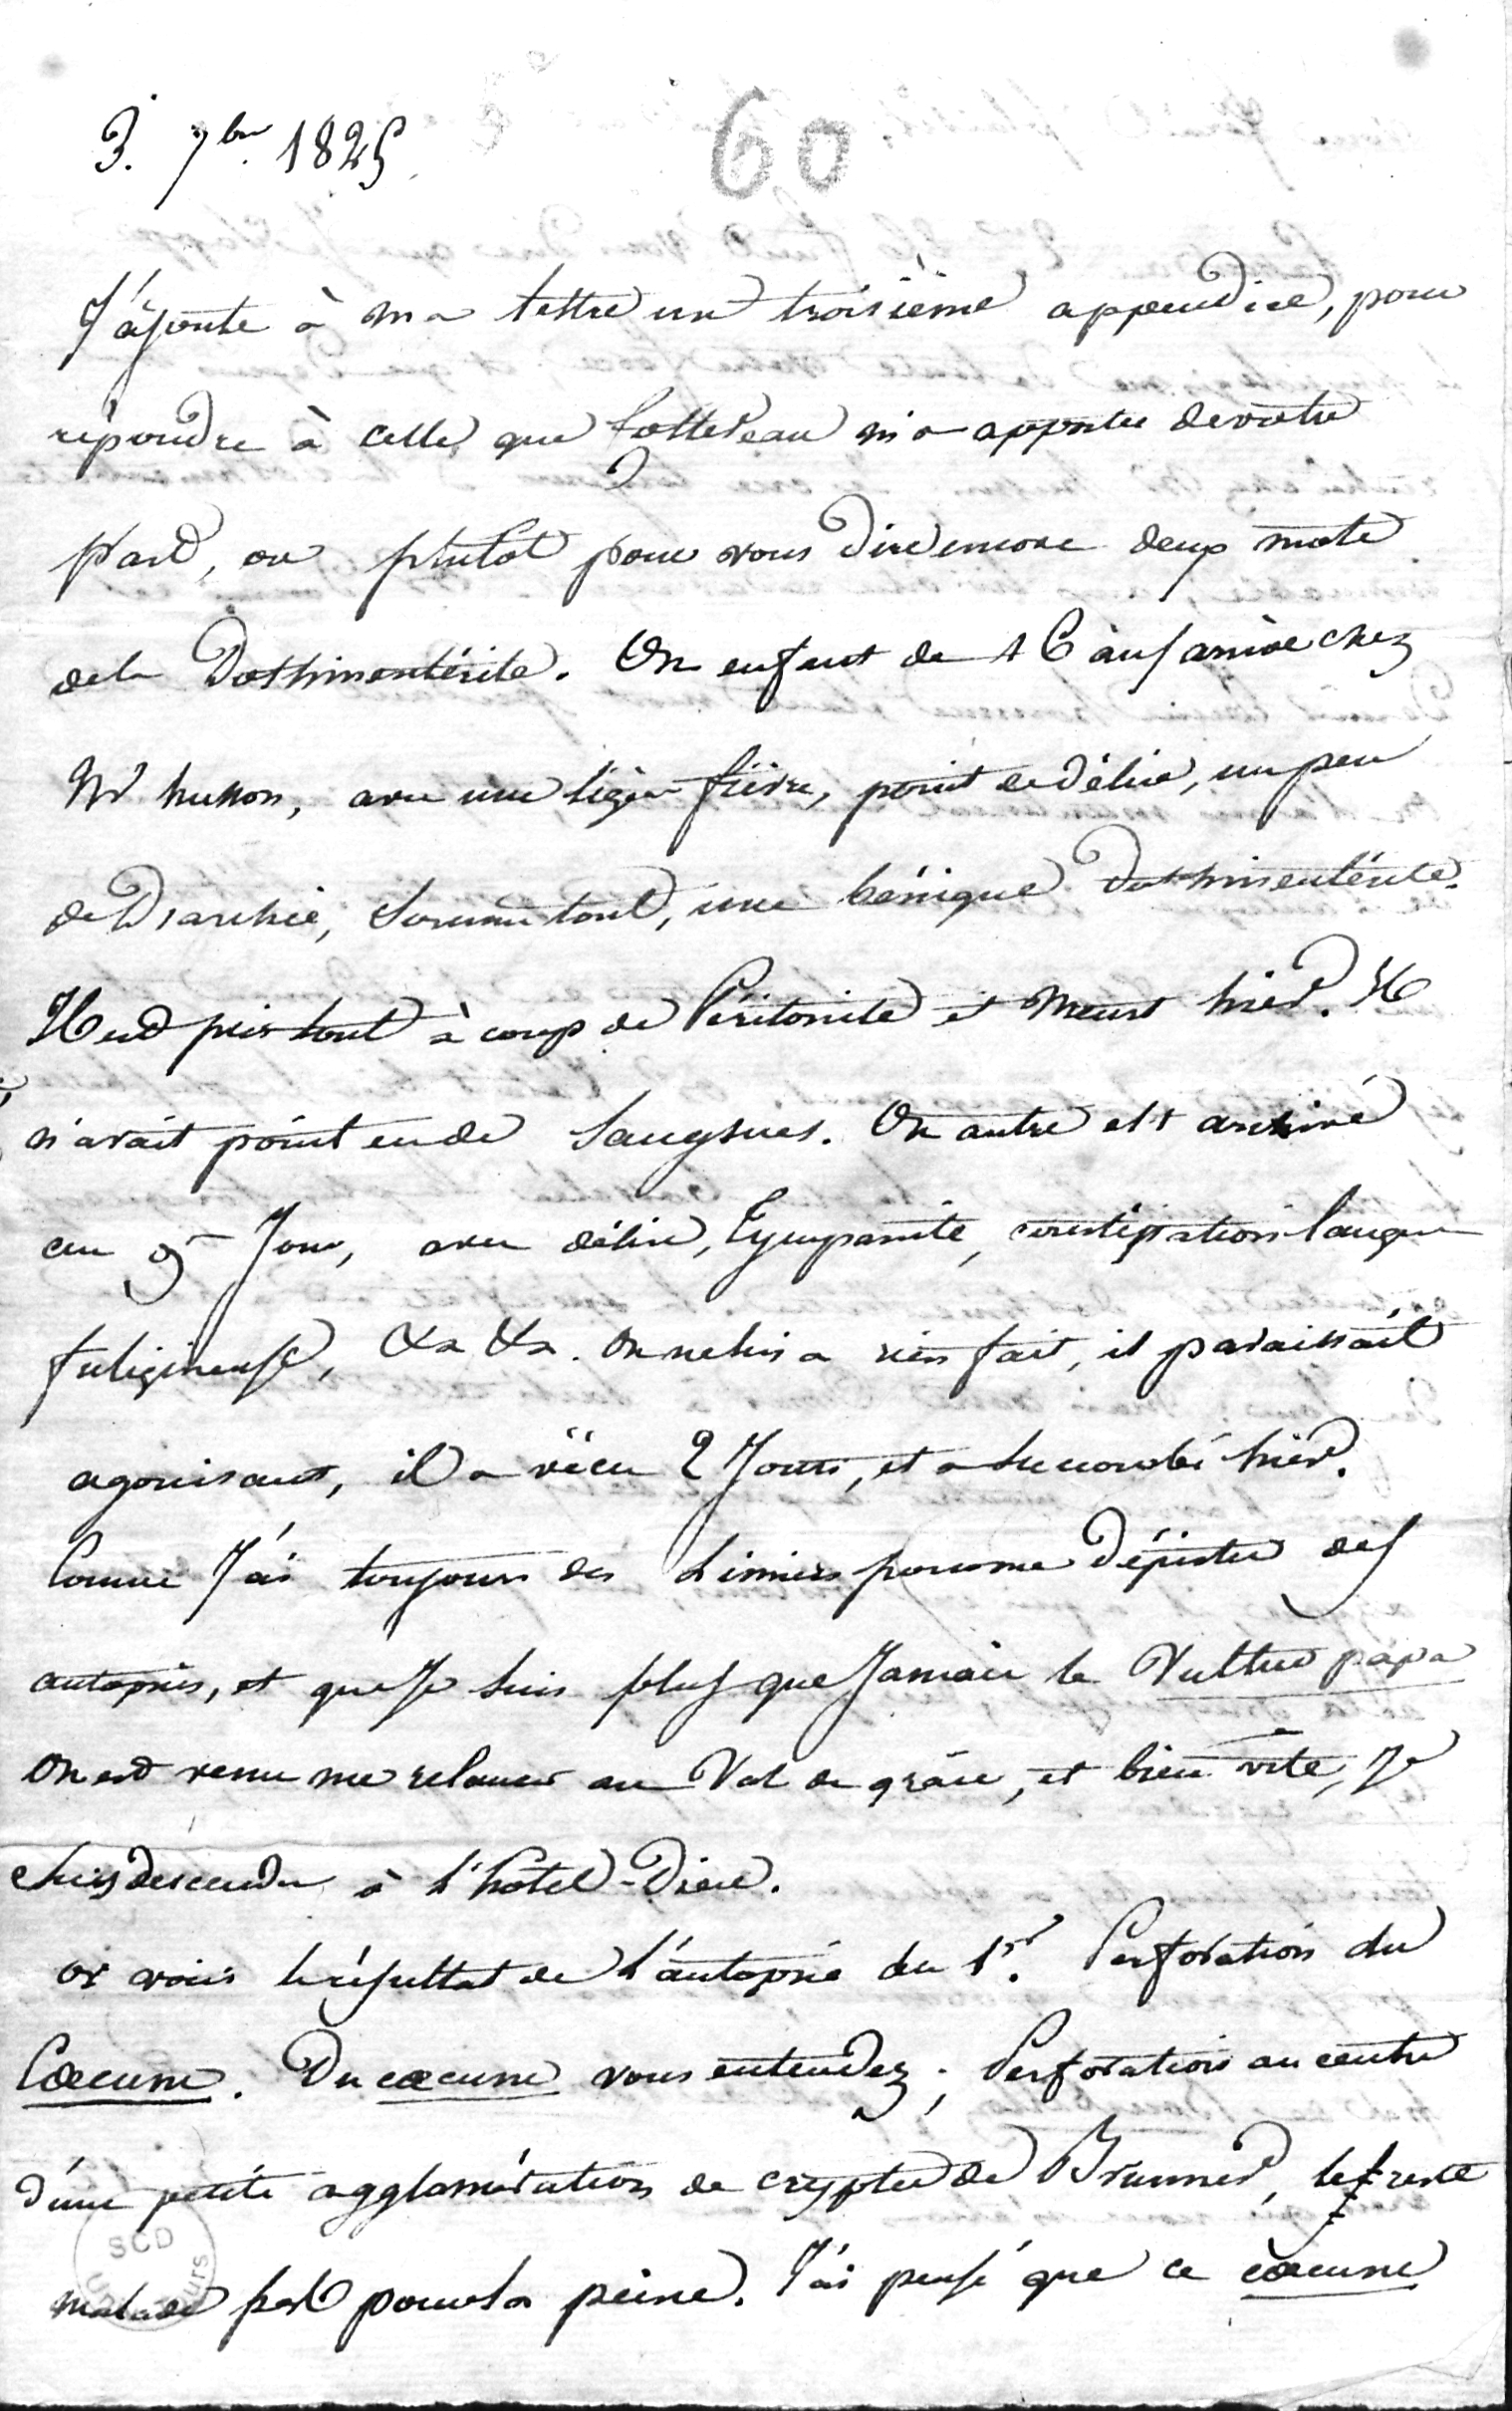 3. 7bre 1825
60
J'ajoute à ma lettre un troisième appendice, pour
répondre à celle que Cottereau m'a apportée de votre
part, ou plutot pour vous dire encore deux mots
de la Dothinentérite. Un enfant de 16 ans arrive chez
Mr husson, avec une légère fièvre, point de délire, un peu
de Diarrhée, somme tout, une bénigne Dothinentérite.
Il est pris tout à coup de Péritonite et Meurt hier. Il
n'avait point eu de Sangsues. Un autre est arrivé
au 9e Jour, avec délire, Tympanite, constipation langue
fuligineuse, &a &a. On ne lui a rien fait, il paraissait
agonisant, il a vécu 2 Jours, et a succombé hier.
Comme J'ai toujours des Limiers pour me Dépister des
autopsies, et que Je suis plus que Jamais le Vultur papa
On est venu me relancer au Val de grâce, et bien vite, Je
suis descendu à l'hôtel-Dieu.
or voici le résultat de l'autopsie du 1er. Perforation du
Cœcum. Du cœcum vous entendez; Perforation au centre
d'une petite agglomération de cryptes de Brunner, le reste
malade pas pour la peine. J'ai pensé que ce cœcum
SCD
Tours